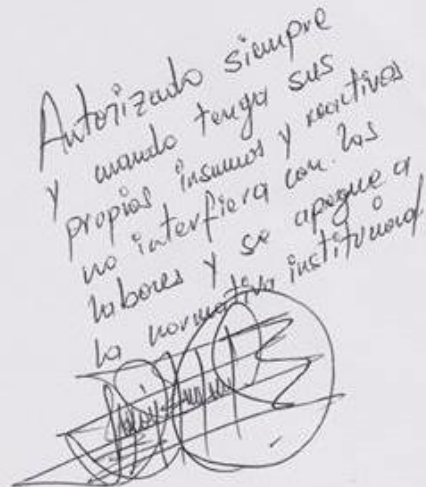 Autorizado siempre
y cuando tenga sus
propios insumos y reactivos
no interfiera con las
labores y se apegue a
la normativa institucional